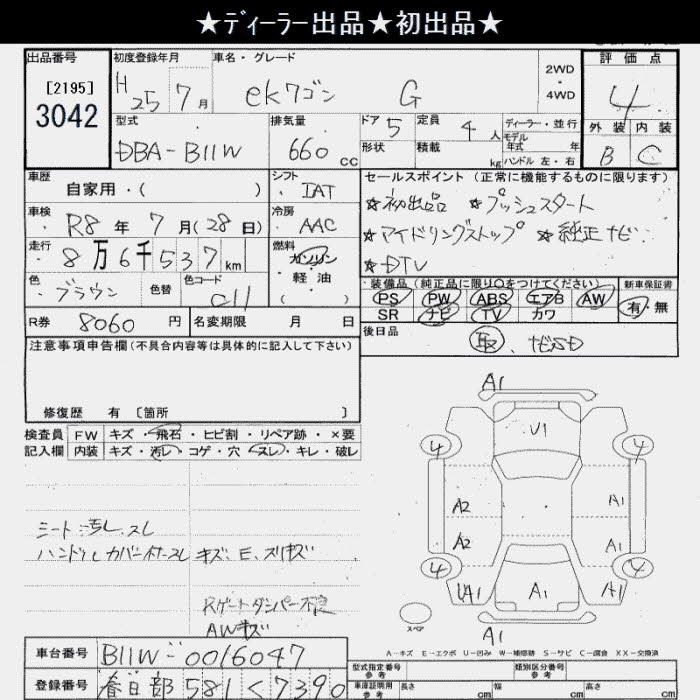 ★ディーラー出品★初出品★
出品番号 初度登録年月 車名・グレード 2WD・4WD 評価点
[2195] 3042 H25 7月 ekワゴン G 4
型式 排気量 ドア 5 定員 4人 ディーラー・並行 外装 内装
DBA-B11W 660cc 形状 積載 kg モデル年式 年 ハンドル 左・右 B C
車歴 シフト セールスポイント (正常に機能するものに限ります)
自家用・( ) IAT ★初出品 ★プッシュスタート
車検 冷房
R8年7月(28日) AAC ★アイドリングストップ ★純正ナビ
走行 燃料
8万6千537km ガソリン・軽油( ) ★DTV
色 色替 色コード 装備品(純正品に限り○をつけてください) 新車保証書
ブラウン C11 PS PW ABS エアB AW 有・無
SR ナビ TV カワ
R券 8060円 名変期限 月 日 後日品
注意事項申告欄(不具合内容等は具体的に記入して下さい) 取、ナビSD
修復歴 有 〔箇所 〕
検査員 FW キズ・飛石・ヒビ割・リペア跡・×要
記入欄 内装 キズ・汚レ・コゲ・穴・スレ・キレ・破レ
A1
U1
4 4
A2 A1
A2 A1
4 4
UA1 A1 A1
スペア
A1
シート汚レ、スレ
ハンドルカバー スレ キズ、E、スリキズ
Rゲートダンパー不良
AWキズ
A-キズ E-エクボ U-凹み W-補修跡 S-サビ C-腐食 XX-交換済
車台番号 B11W-0016047
型式指定番号 参考 類別区分番号 参考
登録番号 春日部 581 く 7390
車庫証明用 参考 長さ cm 幅 cm 高さ cm